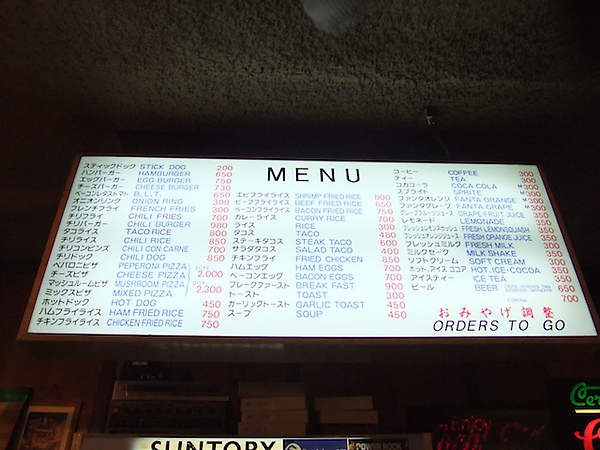 MENU
スティックドック STICK DOG 200
ハンバーガー HAMBURGER 650
エッグバーガー EGG BURGER 750
チーズバーガー CHEESE BURGER 730
ベーコンレタストマト B.L.T. 650
オニオンリング ONION RING 300
フレンチフライ FRENCH FRIES 300
チリフライ CHILI FRIES 700
チリバーガー CHILI BURGER 980
タコライス TACO RICE 800
チリライス CHILI RICE 850
チリコンビンズ CHILI CON CARNE 700
チリドック CHILI DOG 850
ペパロニピザ PEPERONI PIZZA
チーズピザ CHEESE PIZZA 2,000
マッシュルームピザ MUSHROOM PIZZA
ミックスピザ MIXED PIZZA 2,300
ホットドック HOT DOG 450
ハムフライライス HAM FRIED RICE 750
チキンフライライス CHICKEN FRIED RICE 750
エビフライライス SHRIMP FRIED RICE 800
ビーフフライライス BEEF FRIED RICE 850
ベーコンフライライス BACON FRIED RICE 750
カレーライス CURRY RICE 700
ライス RICE 300
タコス TACO 480
ステーキタコス STEAK TACO 600
サラダタコス SALAD TACO 400
チキンフライ FRIED CHICKEN 850
ハムエッグ HAM EGGS 700
ベーコンエッグ BACON EGGS 700
ブレークファースト BREAK FAST 900
トースト TOAST 300
ガーリックトースト GARLIC TOAST 450
スープ SOUP 450
コーヒー COFFEE 300
ティー TEA 300
コカコラ COCA COLA 300
スプライト SPRITE 300
ファンタオレンジ FANTA ORANGE 300
ファンタグレープ FANTA GRAPE 300
グレープフルーツジュース GRAPE FRUIT JUICE 350
レモネード LEMONADE 350
フレッシュレモンスカッシュ FRESH LEMONSQUASH 350
フレッシュオレンジジュース FRESH ORANGE JUICE 350
フレッシュミルク FRESH MILK 350
ミルクセーク MILK SHAKE 350
ソフトクリーム SOFT CREAM 350
ホット、アイス ココア HOT.ICE・COCOA 350
アイスティー ICE TEA 350
ビール BEER 650
CORONA 700
おみやげ調整
ORDERS TO GO
SUNTORY
POWER ROCK